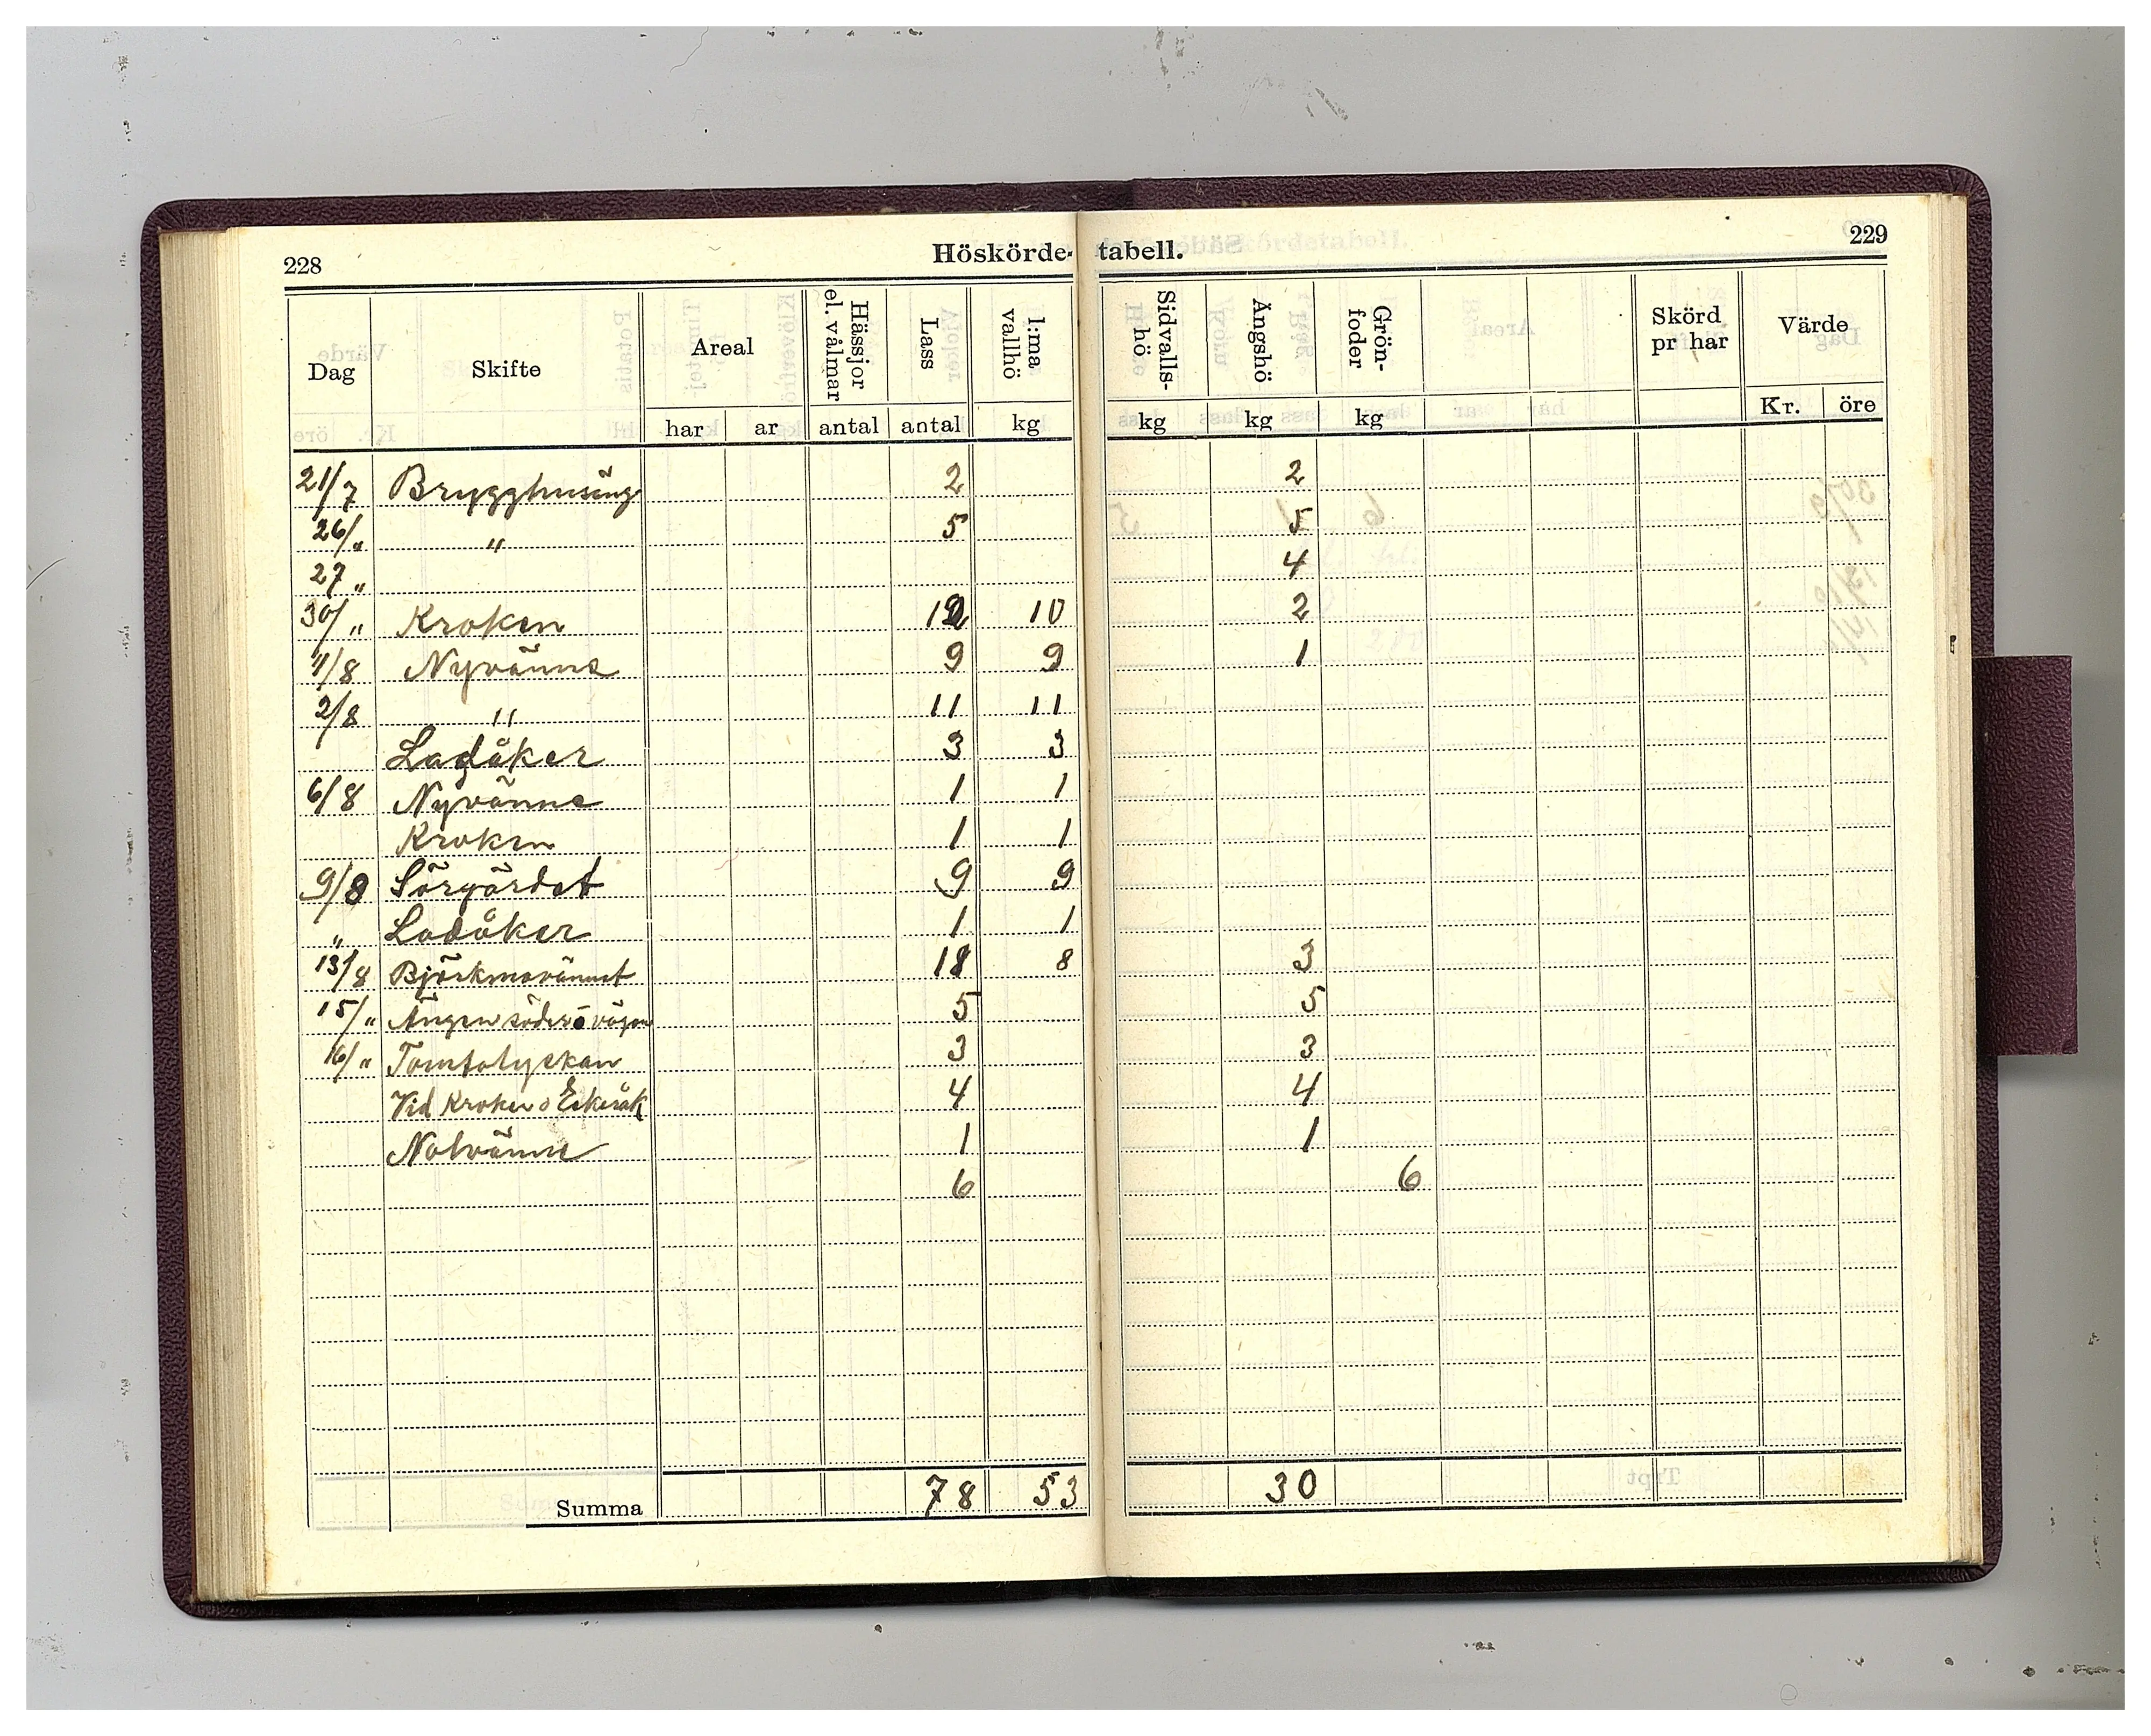 228
Höskörde-
tabell.
229
Dag Skifte Areal Hässjor el. vålmar Lass 1:ma vallhö Sidvalls-hö Ängshö Grön-foder Skörd pr har Värde
har ar antal antal kg kg kg kg Kr. öre
21/7 Brygghusäng 2 2
26/" " 5 5
27 " 4
30/" Kroken 12 10 2
1/8 Nyvänne 9 9 1
2/8 " 11 11
Ladåker 3 3
6/8 Nyvänne 1 1
Kroken 1 1
9/8 Sörgärdet 9 9
" Ladåker 1 1
13/8 18 8 3
15/" Ängen söder ō vägen 5 5
16/" Tomtalyckan 3 3
Vid Kroken o 4 4
Nolvänne 1 1
6 6
Summa 78 53 30